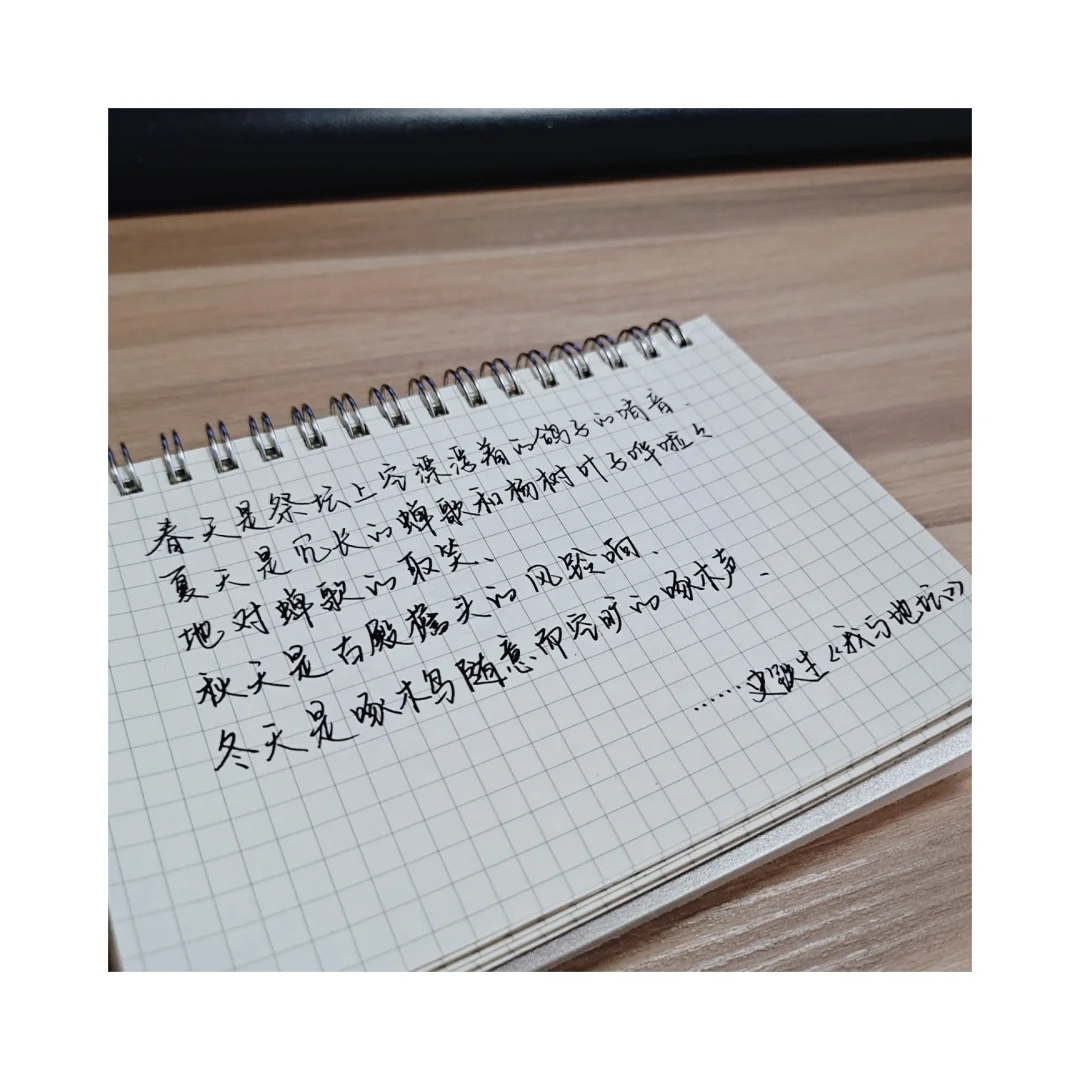 春天是祭坛上空漂浮着的鸽子的哨音、
夏天是冗长的蝉歌和杨树叶子哗啦々
地对蝉歌的取笑、
秋天是古殿檐头的风铃响、
冬天是啄木鸟随意而空旷的啄木声、
……史铁生《我与地坛》